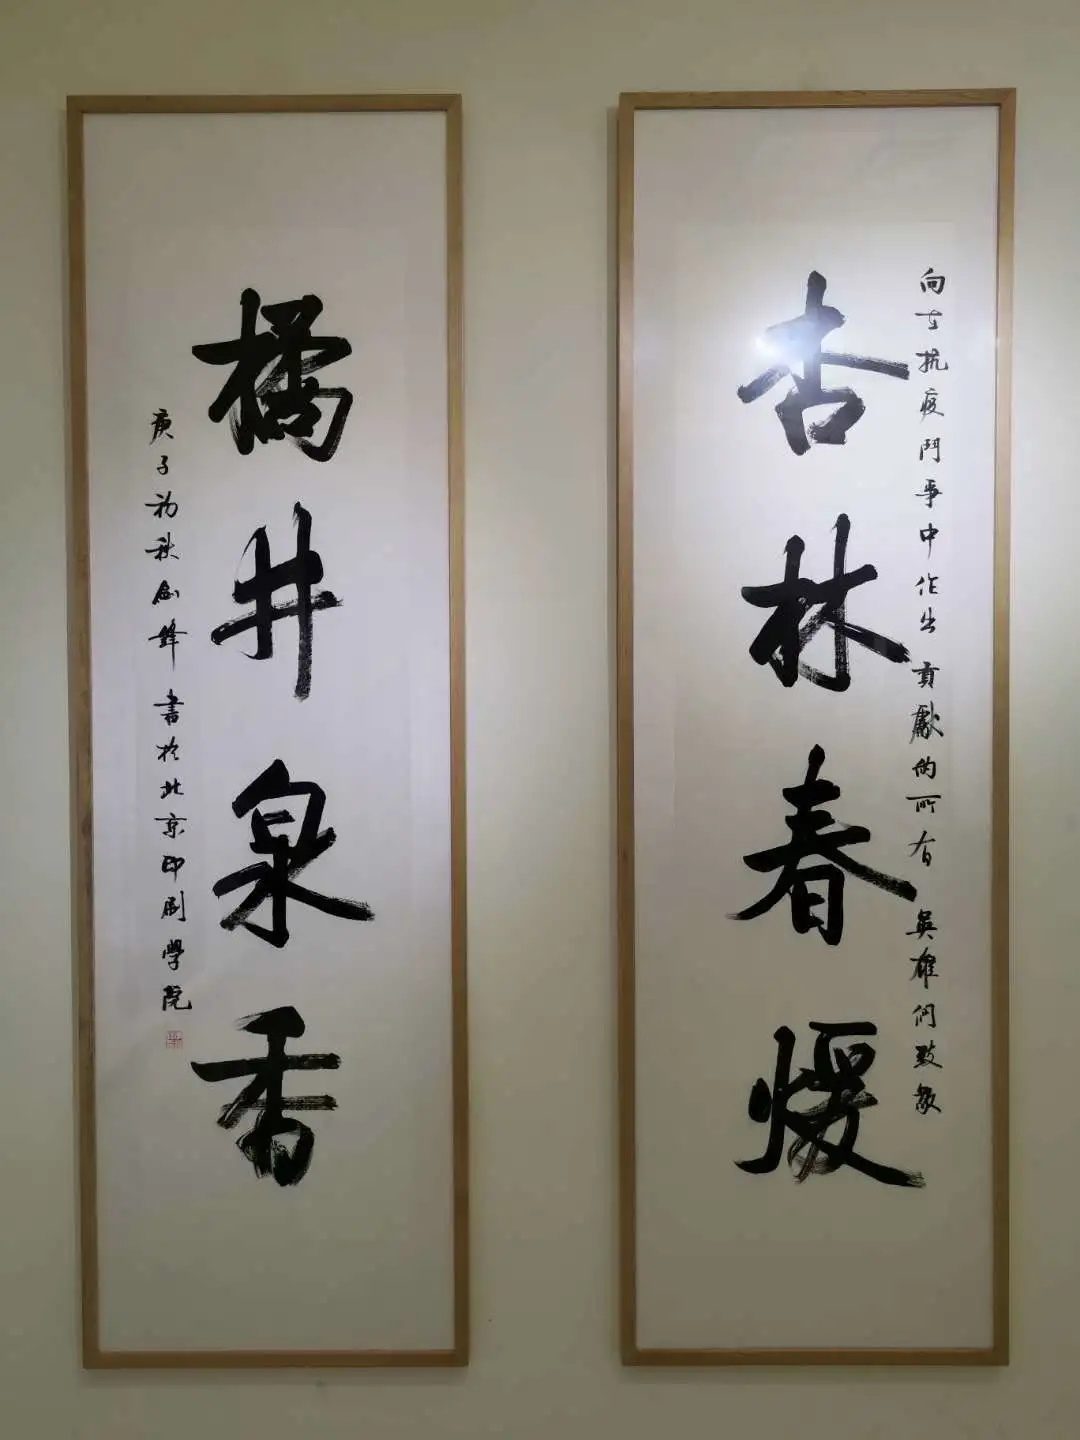 向在抗疫鬥爭中作出貢獻的所有英雄們致敬
杏林春暖
橘井泉香
庚子初秋劍鋒書於北京印刷學院